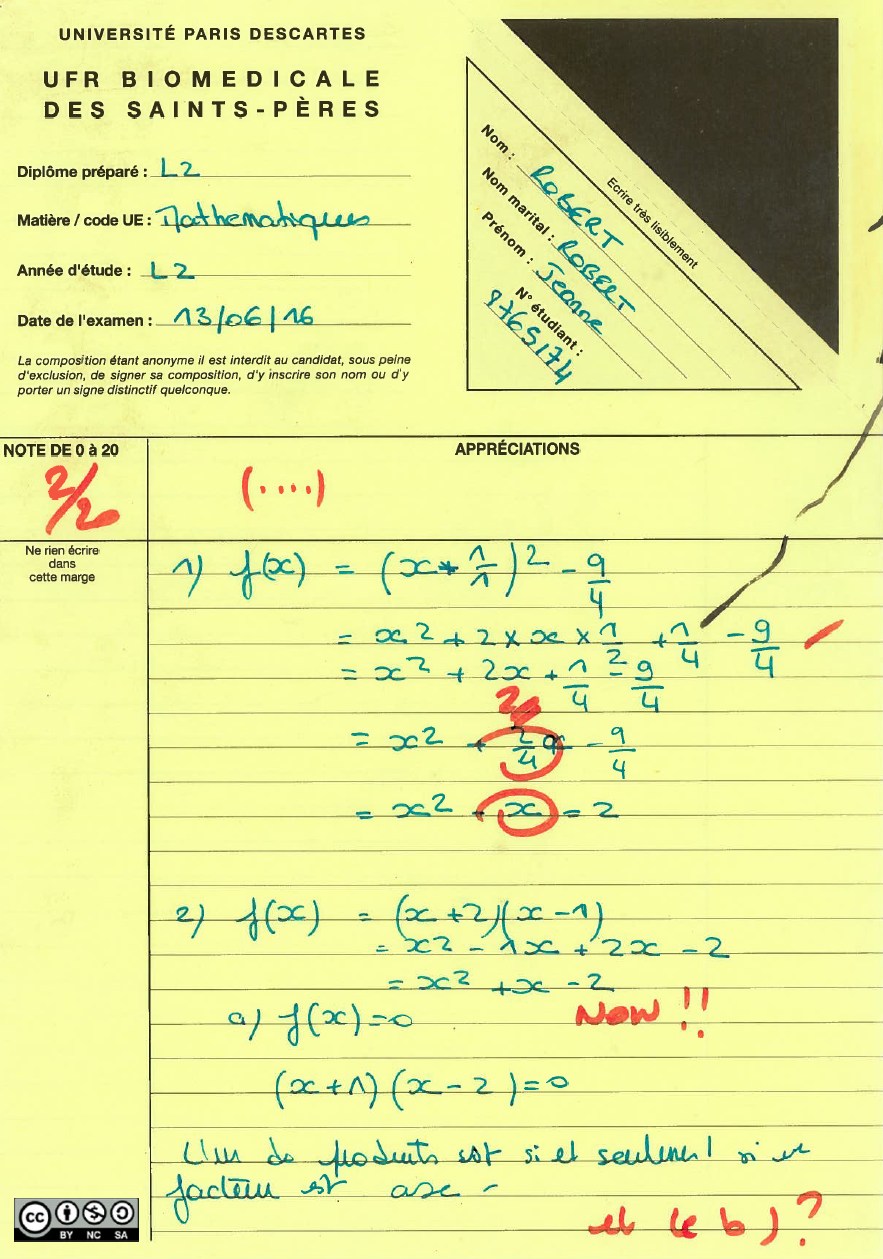 UNIVERSITÉ PARIS DESCARTES
UFR BIOMEDICALE
DES SAINTS-PÈRES
Diplôme préparé : L2
Matière / code UE : Mathematiques
Année d'étude : L2
Date de l'examen : 13/06/16
La composition étant anonyme il est interdit au candidat, sous peine
d'exclusion, de signer sa composition, d'y inscrire son nom ou d'y
porter un signe distinctif quelconque.
Ecrire très lisiblement
Nom : ROBERT
Nom marital : ROBERT
Prénom : Jeanne
N° étudiant :
8765174
NOTE DE 0 à 20
APPRÉCIATIONS
2/20
(....)
Ne rien écrire
dans
cette marge
1) f(x) = (x + 1/1)2 - 9/4
= x2 + 2 × x × 1/2 + 1/4 - 9/4
= x2 + 2x + 1/4 - 9/4
= x2 + 2/4 x - 9/4
= x2 + x = 2
2) f(x) = (x+2)(x-1)
= x2 - 1x + 2x - 2
= x2 + x - 2
a) f(x) = 0
NON !!
(x+1)(x-2) = 0
de produits est si et seulement si un
facteur est
et le b) ?
CC BY NC SA